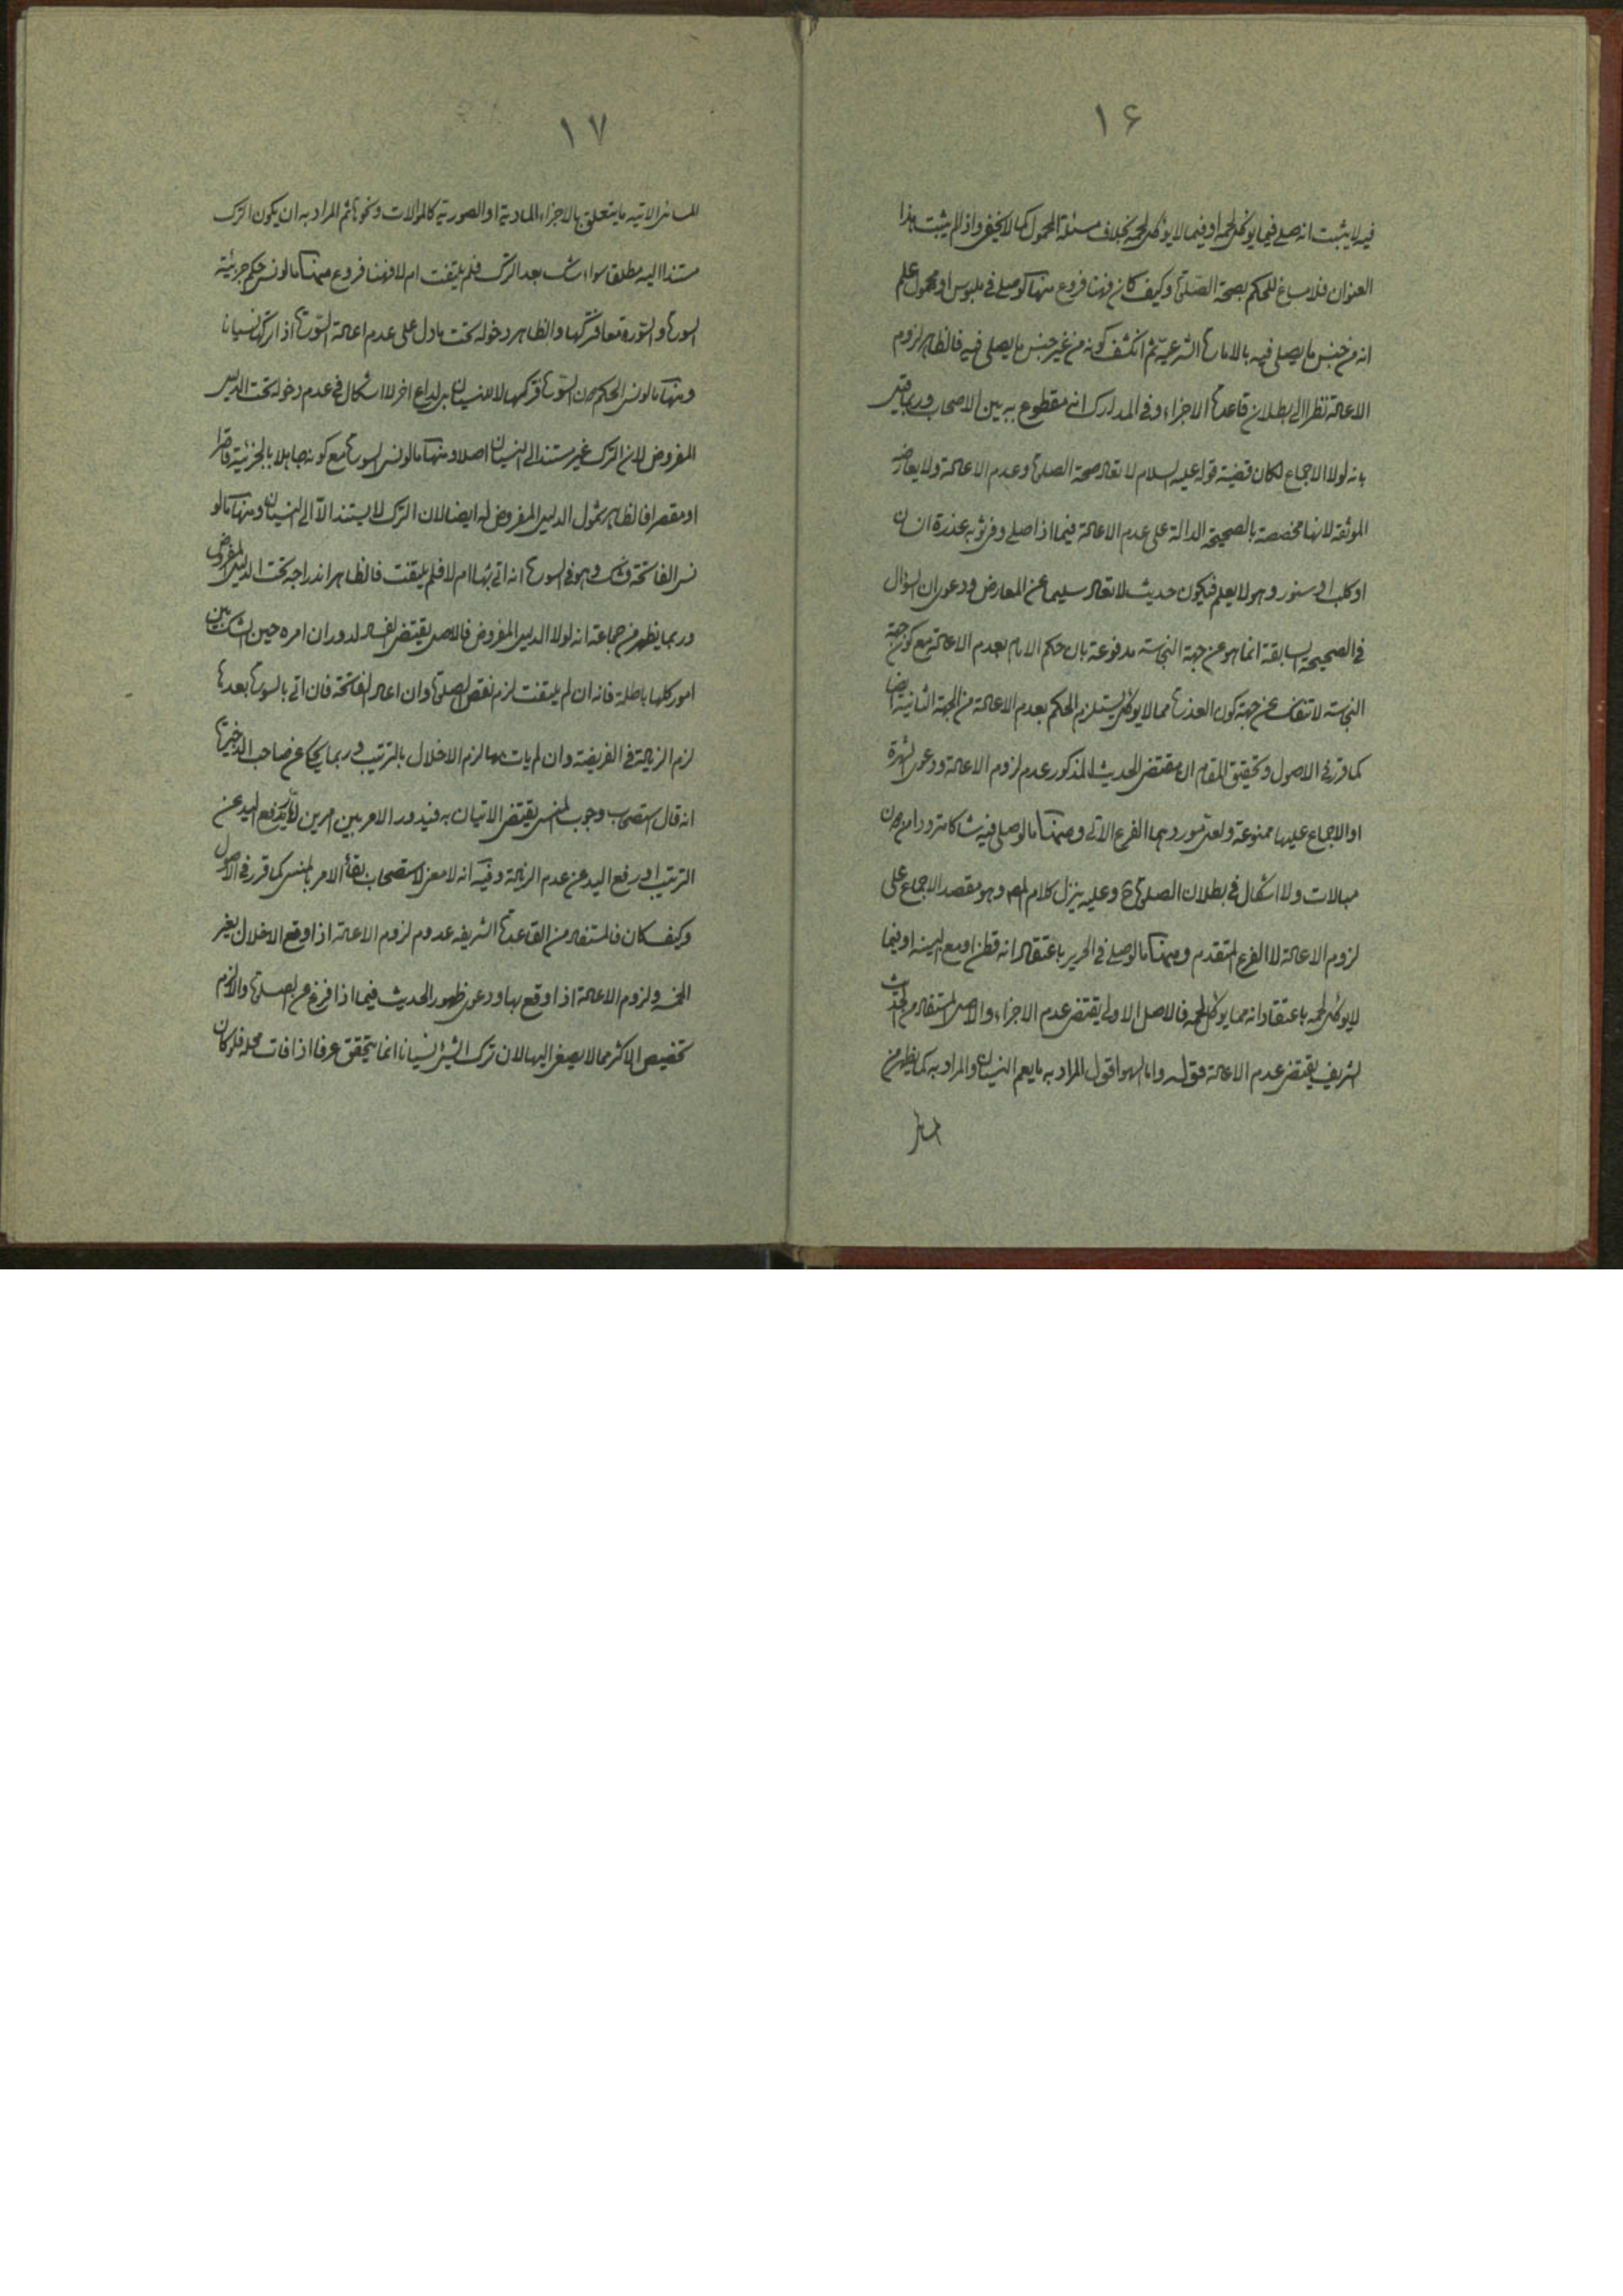 ۱۶
فيه لا يثبت انه صلى فيما يوكل لحمه او فيما لا يوكل لحمه بخلاف مسئلة المحمول كما لا يخفى واذ لم يثبت هذا
العنوان فلا مساغ للحكم بصحة الصلوة وكيف كان فهنا فروع منها ما لو صلى في ملبوس او محمول علم
انه من جنس ما يصلى فيه بالامارة الشرعية ثم انكشف كونه من غير جنس ما يصلى فيه فالظاهر لزوم
الاعادة نظرا الى بطلان قاعدة الاجزاء وفي المدارك انه مقطوع به بين الاصحاب وربما قيل
بانه لولا الاجماع لكان قضية قوله عليه السلام لا تعاد صحة الصلوة وعدم الاعادة ولا يعارضه
الموثقة لانها مخصصة بالصحيحة الدالة على عدم الاعادة فيما اذا صلى وفي ثوبه عذرة انسان
او كلب او سنور وهو لا يعلم فيكون حديث لا تعاد سليما عن المعارض ودعوى ان السؤال
في الصحيحة السابقة انما هو عن جهة النجاسة مدفوعة بان حكم الامام بعدم الاعادة مع كون جهة
النجاسة لا تنفك عن جهة كون العذرة مما لا يوكل يستلزم الحكم بعدم الاعادة من الجهة الثانية ايضا
كما قرر في الاصول وتحقيق المقام ان مقتضى الحديث المذكور عدم لزوم الاعادة ودعوى الشهرة
او الاجماع عليها ممنوعة ولعل موردهما الفرع الاتي ومنها ما لو صلى فيه شاكا مترددا من دون
مبالات ولا اشكال في بطلان الصلوة ح وعليه ينزل كلام المص وهو مقصد الاجماع على
لزوم الاعادة لا الفرع المتقدم ومنها ما لو صلى في الحرير باعتقاد انه قطن او مع البينه او فيما
لا يوكل لحمه باعتقاد انه مما يوكل لحمه فالاصل الاولى يقتضى عدم الاجزاء والاصل المستفاد من الحديث
الشريف يقتضى عدم الاعادة قوله واما السهو اقول المراد به ما يعم النسيان والمراد به كما يظهر من
۱۷
المسائل الاتيه ما يتعلق بالاجزاء المادية او الصورية كالموالات ونحوها ثم المراد به ان يكون الترك
مستندا اليه مطلقا سواء شك بعد الترك فلم يلتفت ام لا فهنا فروع منها ما لو نسى حكم جزئية
السورة والسورة معا فتركها والظاهر دخوله تحت ما دل على عدم اعادة السورة اذا تركها نسيانا
ومنها ما لو نسى الحكم دون السورة فتركها لا للنسيان بل لداع اخر لا اشكال في عدم دخوله تحت الدليل
المفروض لان الترك غير مستند الى النسيان اصلا ومنها ما لو نسى السورة مع كونه جاهلا بالجزئية قاصرا
او مقصرا فالظاهر شمول الدليل المفروض له ايضا لان الترك لا يستند الا الى النسيان ومنها ما لو
نسى الفاتحة فشك وهو في السورة انه اتى بها ام لا فلم يلتفت فالظاهر اندراجه تحت الدليل المفروض
وربما يظهر من جماعة انه لولا الدليل المفروض فالاصل يقتضى الفساد لدوران امره حين الشك بين
امور كلها باطلة فانه ان لم يلتفت لزم نقص الصلوة وان اعاد الفاتحة فان اتى بالسورة بعدها
لزم الزيادة في الفريضة وان لم يات بها لزم الاخلال بالترتيب وربما يحكى عن صاحب الذخيرة
انه قال استصحاب وجوب المنسى يقتضى الاتيان به فيدور الامر بين امرين رفع اليد عن
الترتيب او رفع اليد عن عدم الزيادة وفيه انه لا معنى لاستصحاب بقاء الامر بالمنسى كما قرر في الاصول
وكيف كان فالمستفاد من القاعدة الشريفه عدم لزوم الاعادة اذا وقع الاخلال بغير
الخمسة ولزوم الاعادة اذا وقع بها ودعوى ظهور الحديث فيما اذا فرغ عن الصلوة والا لزم
تخصيص الاكثر مما لا يصغى اليها لان ترك الشئ نسيانا انما يتحقق عرفا اذا فات محله فلو كان